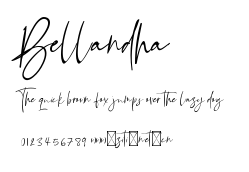 Bellandha
The quick brown fox jumps over the lazy dog
0123456789